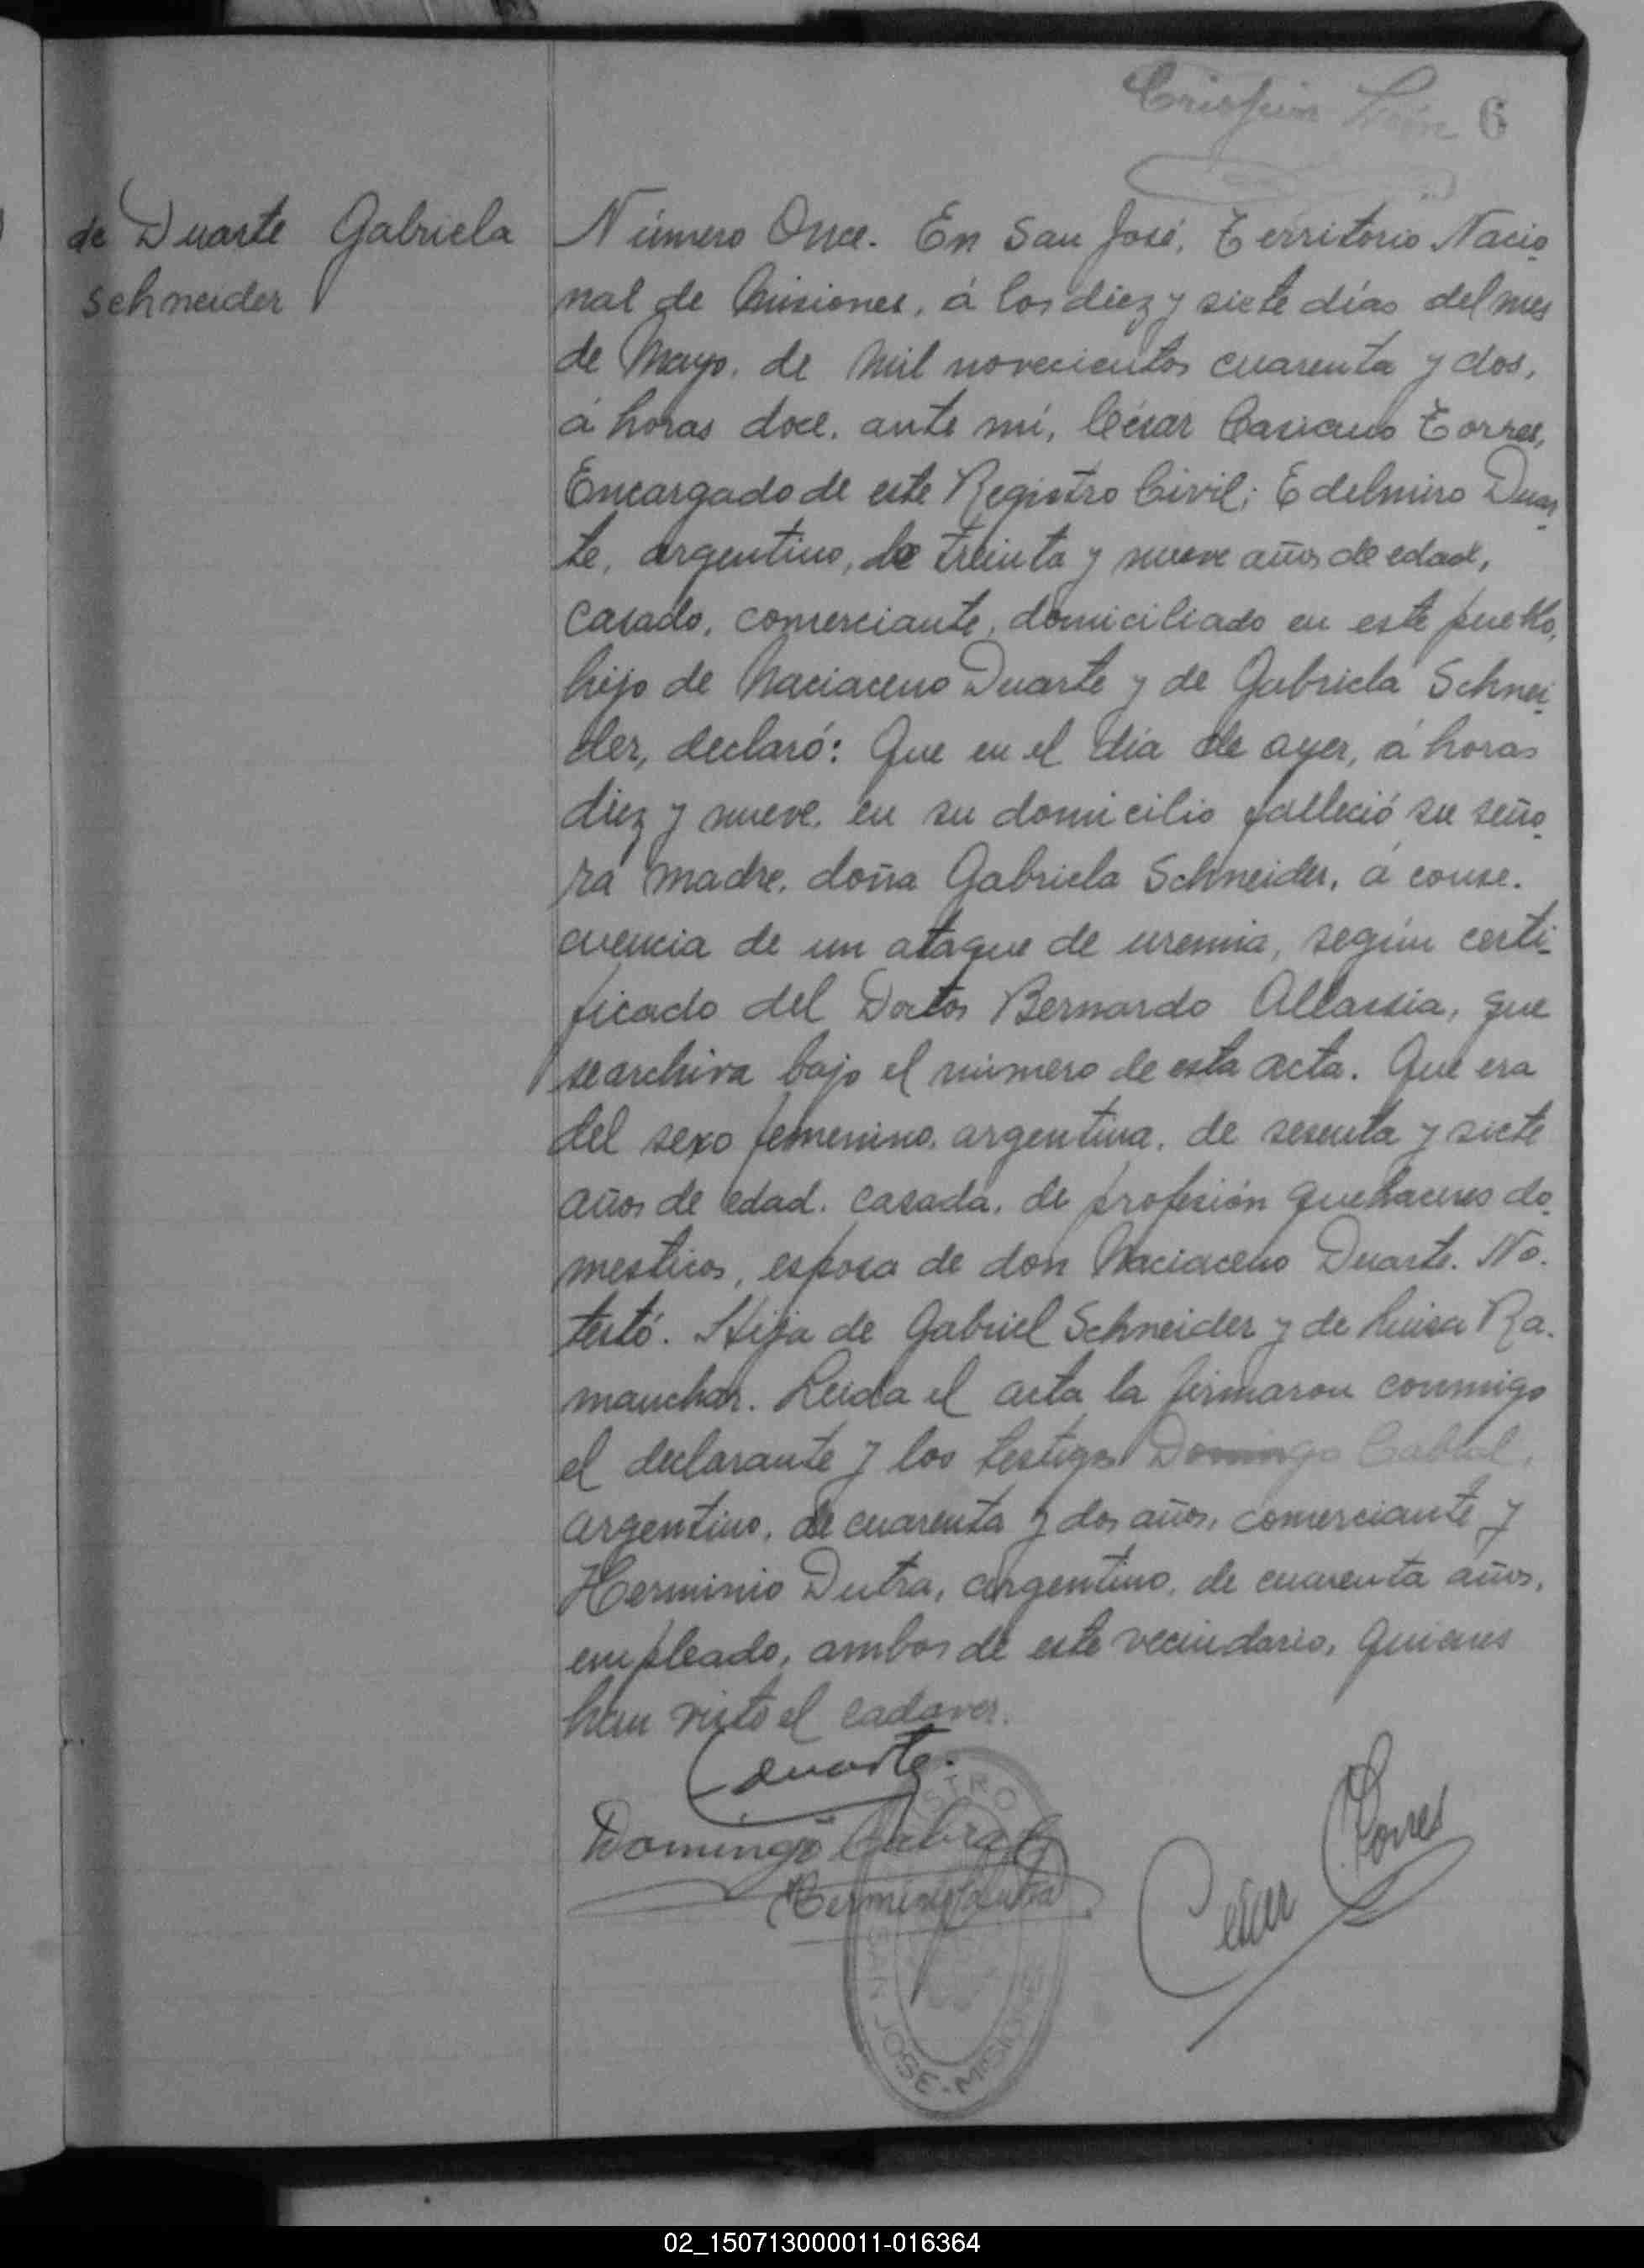 6
de Duarte Gabriela
Schneider
Número Once. En San José, Territorio Nacio
nal de Misiones, á los diez y siete días del mes
de Mayo, de mil novecientos cuarenta y dos,
á horas doce, ante mí, César Casiano Torres,
Encargado de este Registro Civil; Edelmiro Duar
te, argentino, de treinta y nueve años de edad,
casado, comerciante, domiciliado en este pueblo,
hijo de Maciaceno Duarte y de Gabriela Schnei
der, declaró: Que en el día de ayer, á horas
diez y nueve, en su domicilio falleció su seño
ra madre, doña Gabriela Schneider, á conse.
cuencia de un ataque de uremia, según certi-
ficado del Doctor Bernardo Allassia, que
se archiva bajo el número de esta acta. Que era
del sexo femenino, argentina, de sesenta y siete
años de edad, casada, de profesión quehaceres do
mesticos, esposa de don Maciaceno Duarte. No.
testó. Hija de Gabriel Schneider y de Luisa Ra.
manchor. Leida el acta la firmaron conmigo
el declarante y los testigos Domingo Cabral,
argentino, de cuarenta y dos años, comerciante y
Herminio Dutra, argentino, de cuarenta años,
empleado, ambos de este vecindario, quienes
han visto el cadaver.
Duarte
Domingo Cabral
Herminio Dutra
Cesar Torres
SAN JOSE - MISIONES
02_150713000011-016364